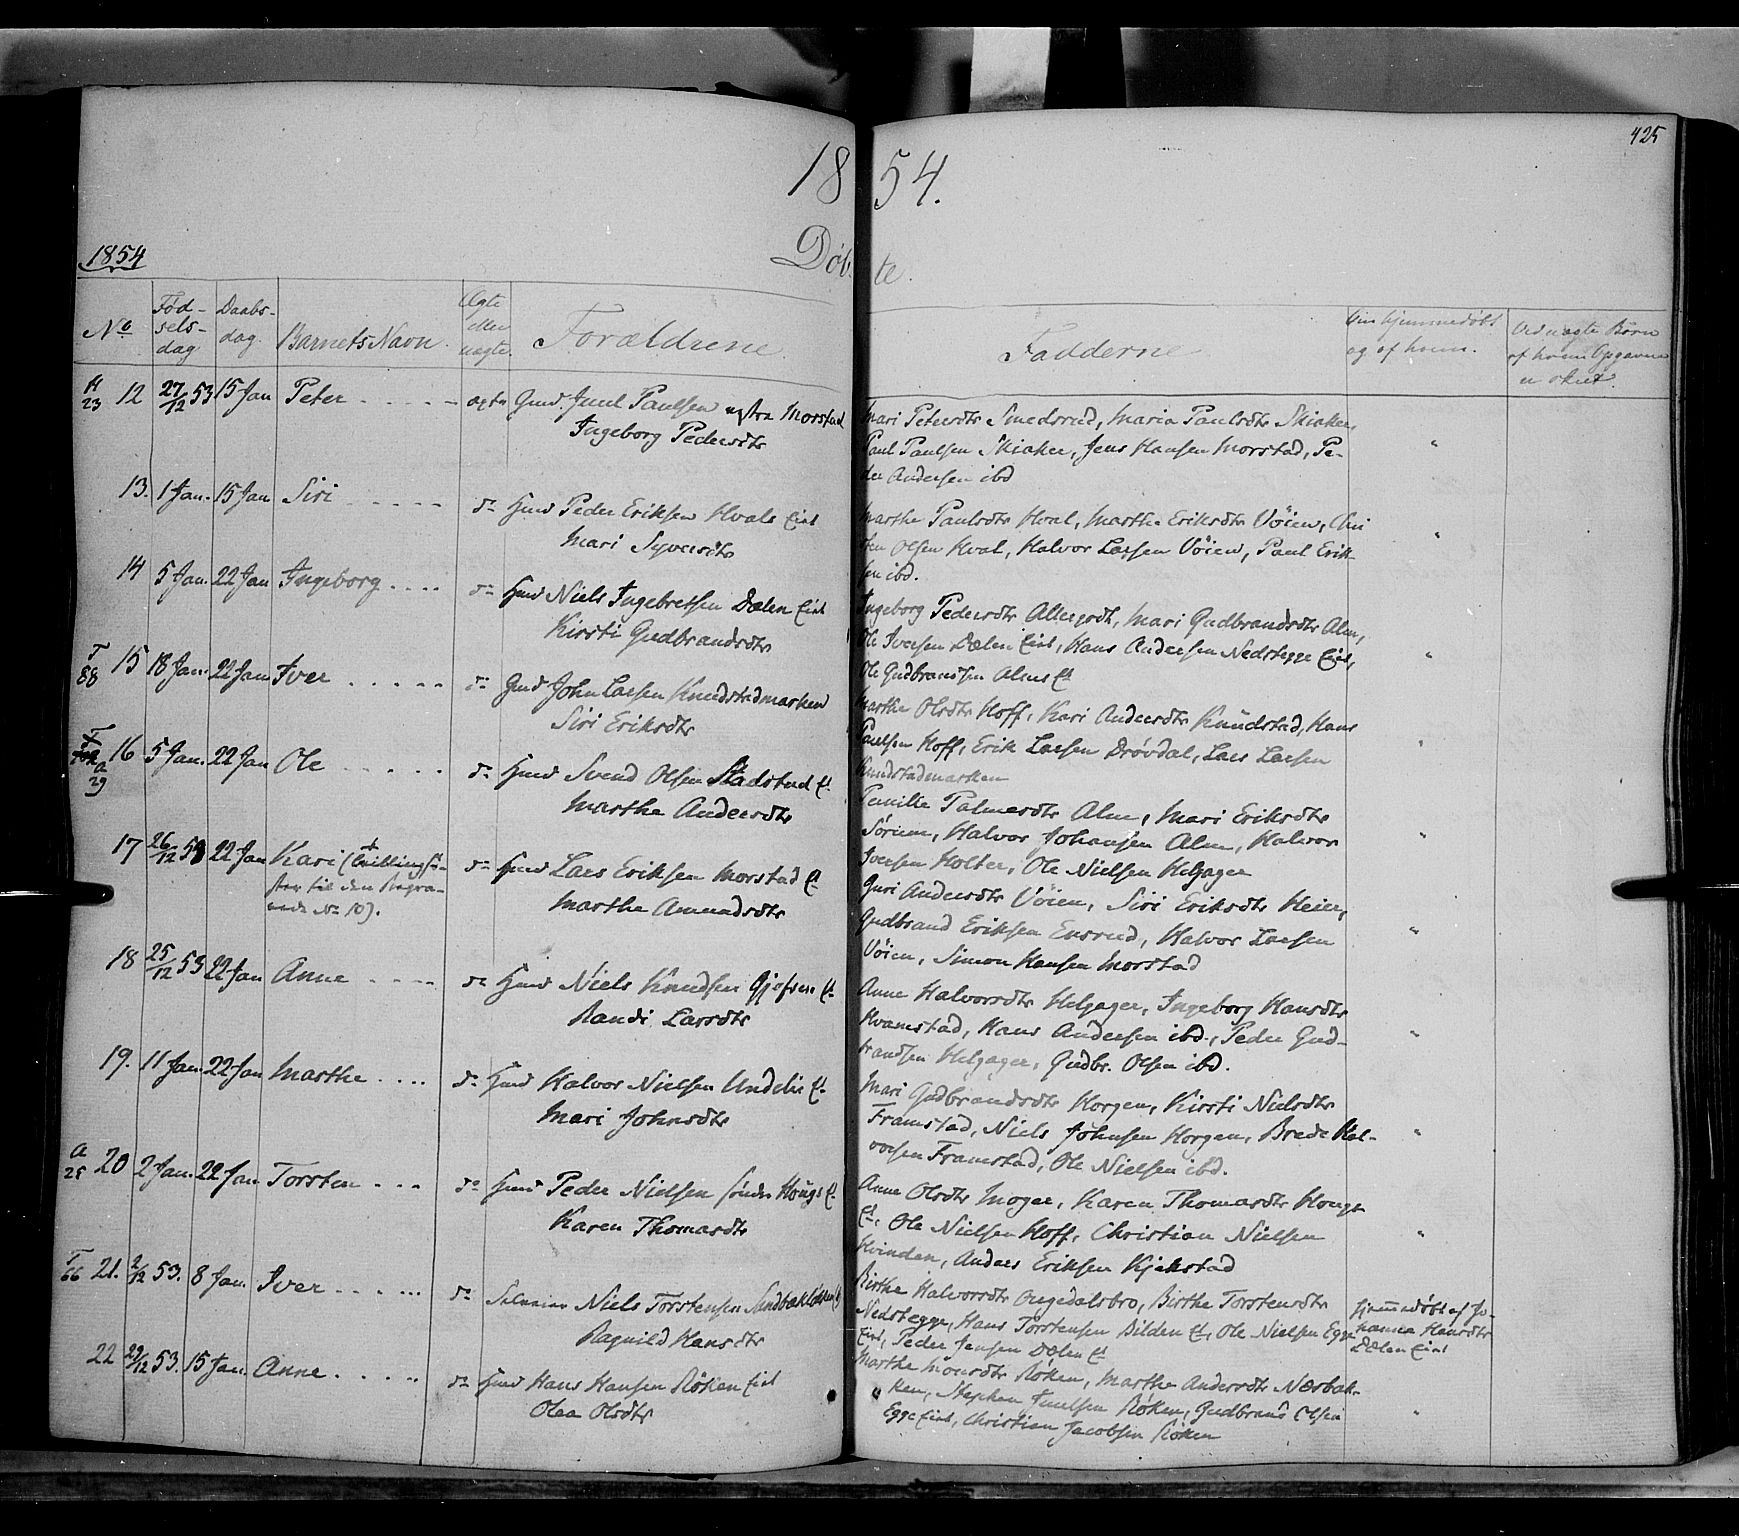 425
18 54.
1854
Døbte.
No
Fød-
sels-
dag
Daabs-
dag.
Barnets Navn.
Ægte
eller
uægte.
Forældrene.
Fadderne
Om hjemmedøbt
og af hvem.
Ved uægte Børn
af hvem Opgaven
er skeet.
H 23 12 27/12 53 15 Jan Peter ægte Gmd Juul Paulsen Morstad
Ingeborg Pedersdtr
Mari Petersdtr Smedsrud, Maria Paulsdtr Skiaker,
Paul Paulsen Skiaker, Jens Hansen Morstad, Pe-
der Andersen ibd
13. 1 Jan. 15 Jan Siri do Hmd Peder Eriksen Hvals Eie
Mari Syversdtr
Marthe Paulsdtr Hval, Marthe Eriksdtr Vøien,
Olsen Hval, Halvor Larsen Vøien, Paul Erik-
sen ibd.
14 5 Jan. 22 Jan Ingeborg do Hmd Niels Ingebretsen Dælen Eie
Kirsti Gudbrandsdtr
Ingeborg Pedersdtr Mari Gudbrandsdtr Alm,
Ole Iversen Dælen Eie, Hans Andersen Nedstegge Eie,
Ole Gudbrandsen Alms E
T 88 15 18 Jan. 22 Jan Iver do Gmd John Larsen Knudstadmarken
Siri Eriksdtr
Marthe Olsdtr Hoff, Kari Andersdtr Knudstad, Hans
Paulsen Hoff, Erik Larsen Drøvdal, Lars Larsen
Knudstadmarken
A 29 16 5 Jan. 22 Jan Ole do Hmd Svend Olsen Stadstad E
Marthe Andersdtr
Pernille Palmersdtr Alm, Mari Eriksdtr
Sørum, Halvor Johansen Alm, Halvor
Iversen Holter, Ole Nielsen Helgager
17 26/12 53 22 Jan Kari (Tvillingsø-
ster til den
No 10). do Hmd Lars Eriksen Morstad E
Marthe Amundsdtr
Guri Andersdtr Vøien, Siri Eriksdtr Heier,
Gudbrand Eriksen Ensrud, Halvor Larsen
Vøien, Simon Hansen Morstad
18 25/12 53 22 Jan Anne do Hmd Niels Knudsen E
Randi Larsdtr
Anne Halvorsdtr Helgager, Ingeborg Hansdtr
Kvamstad, Hans Andersen ibd., Peder Gud-
brandsen Helgager, Gudbr. Olsen ibd.
19. 11 Jan. 22 Jan Marthe do Hmd Halvor Nielsen Undelie E
Mari Johnsdtr
Mari Gudbrandsdtr Horgen, Kirsti Nielsdtr
Framstad, Niels Johnsen Horgen, Brede Hal-
vorsen Framstad, Ole Nielsen ibd.
A 25 20 2 Jan. 22 Jan. Torsten do Hmd Peder Nielsen søndre Hougs E
Karen Thomasdtr
Anne Olsdtr Moger, Karen Thomasdtr Hougs
E, Ole Nielsen Hoff, Christian Nielsen
Kvinden, Anders Eriksen Kjekstad
T 66 21. 2/12 53. 8 Jan. Iver do Niels Torstensen Sandbækløkken
Ragnild Hansdtr
Birthe Halvorsdtr Birthe Torstensdtr
Nedstegge, Hans Torstensen Bilden E, Ole Nielsen Egge
Eie, Peder Jensen Dælen E
Hjemmedøbt af Jo-
hanna Hansdtr
Dælen Eie
22 29/12 53. 15 Jan. Anne do Hmd Hans Hansen Røken Eie
Olea Olsdtr
Marthe Monsdtr Røken, Marthe Andersdtr Næsbak-
ken, Stephen Juulsen Røken, Gudbrand Olsen
Egge Eie, Christian Jacobsen Røken